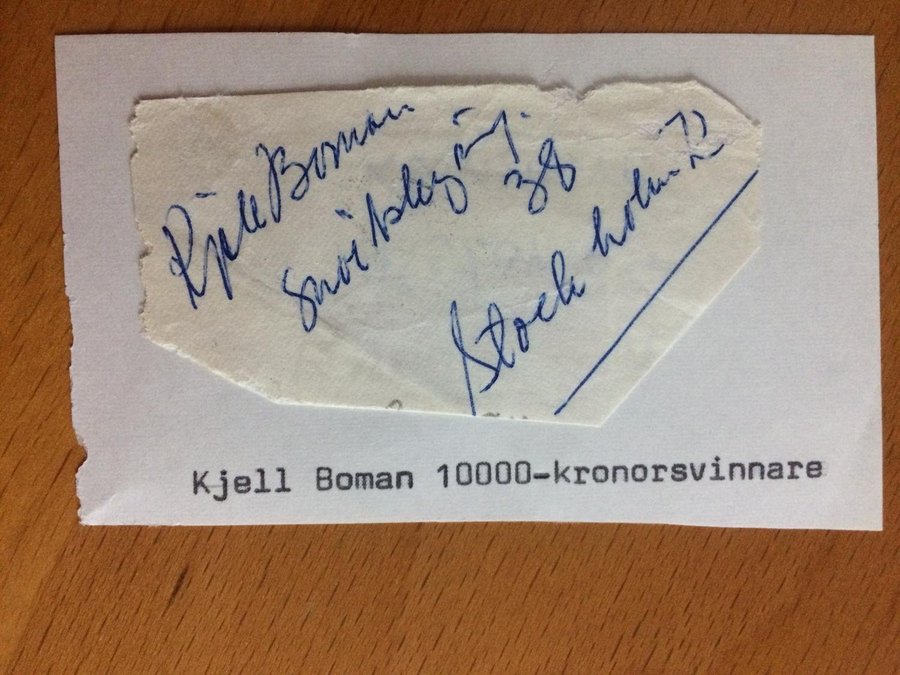 Kjell Boman
38
Stockholm
Kjell Boman 10000-kronorsvinnare